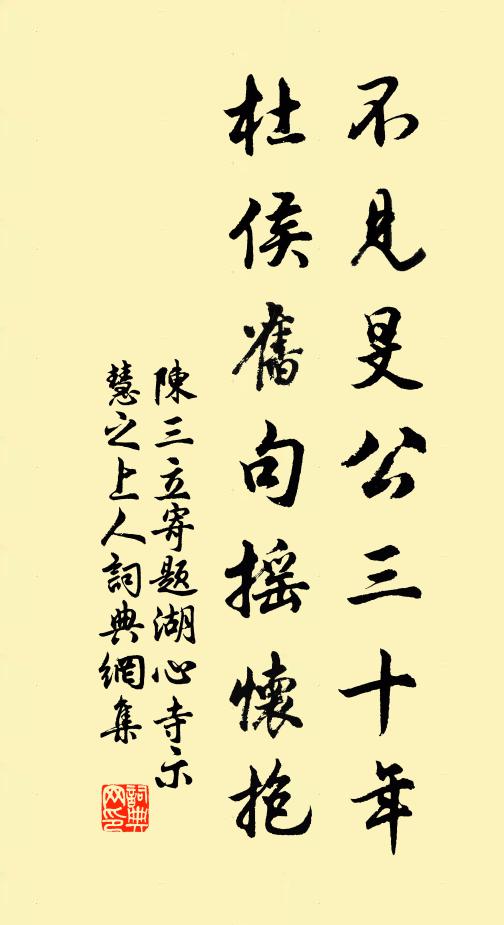 不見旻公三十年
杜侯舊句摇懷抱
陳三立寄題湖心寺示
慧之上人詞典網集
詞典網印